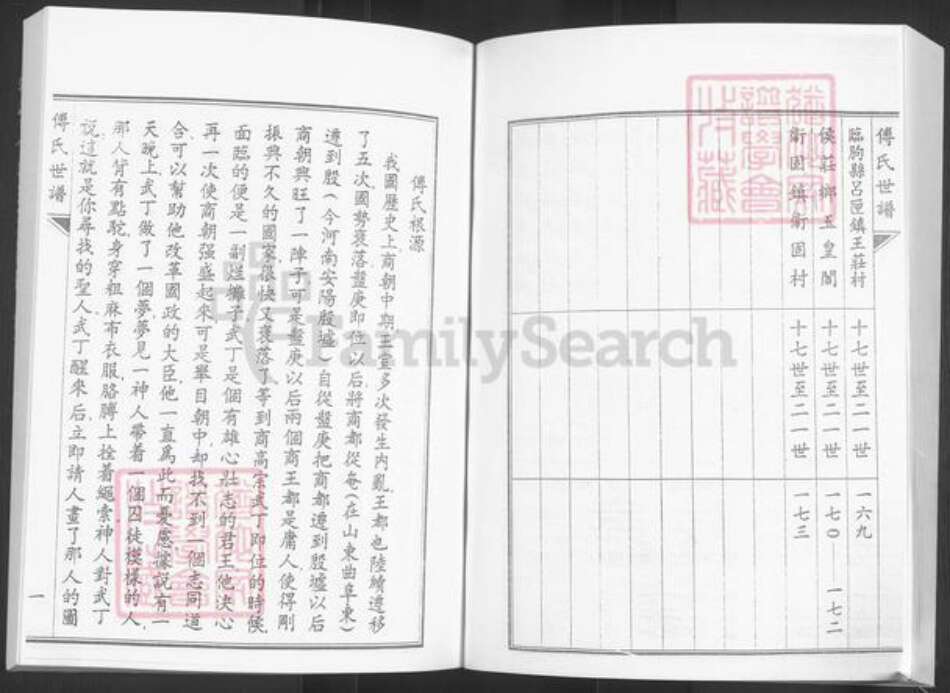 傅氏世譜
臨朐縣呂匣鎮王莊村 十七世至二一世 一六九
侯莊鄉玉皇閣 十七世至二一世 一七〇 一七二
衛固鎮衛固村 十七世至二一世 一七三
傅氏根源
我國歷史上商朝中期王室多次發生內亂王都也陸續遷移
了五次國勢衰落盤庚即位以后將商都從奄(在山東曲阜東)
遷到殷(今河南安陽殷墟)自從盤庚把商都遷到殷墟以后
商朝興旺了一陣子可是盤庚以后兩個商王都是庸人使得剛
振興不久的國家很快又衰落了等到商高宗武丁即位的時候
面臨的便是一副爛攤子武丁是個有雄心壯志的君王他決心
再一次使商朝强盛起來可是舉目朝中却找不到一個志同道
合可以幫助他改革國政的大臣他一直爲此而憂慮據說有一
天晚上武丁做了一個夢夢見一神人帶着一個囚徒模樣的人
那人背有點駝身穿粗麻布衣服胳膊上拴着繩索神人對武丁
說這就是你尋找的聖人武丁醒來后立即請人畫了那人的圖
傅氏世譜
一
FamilySearch